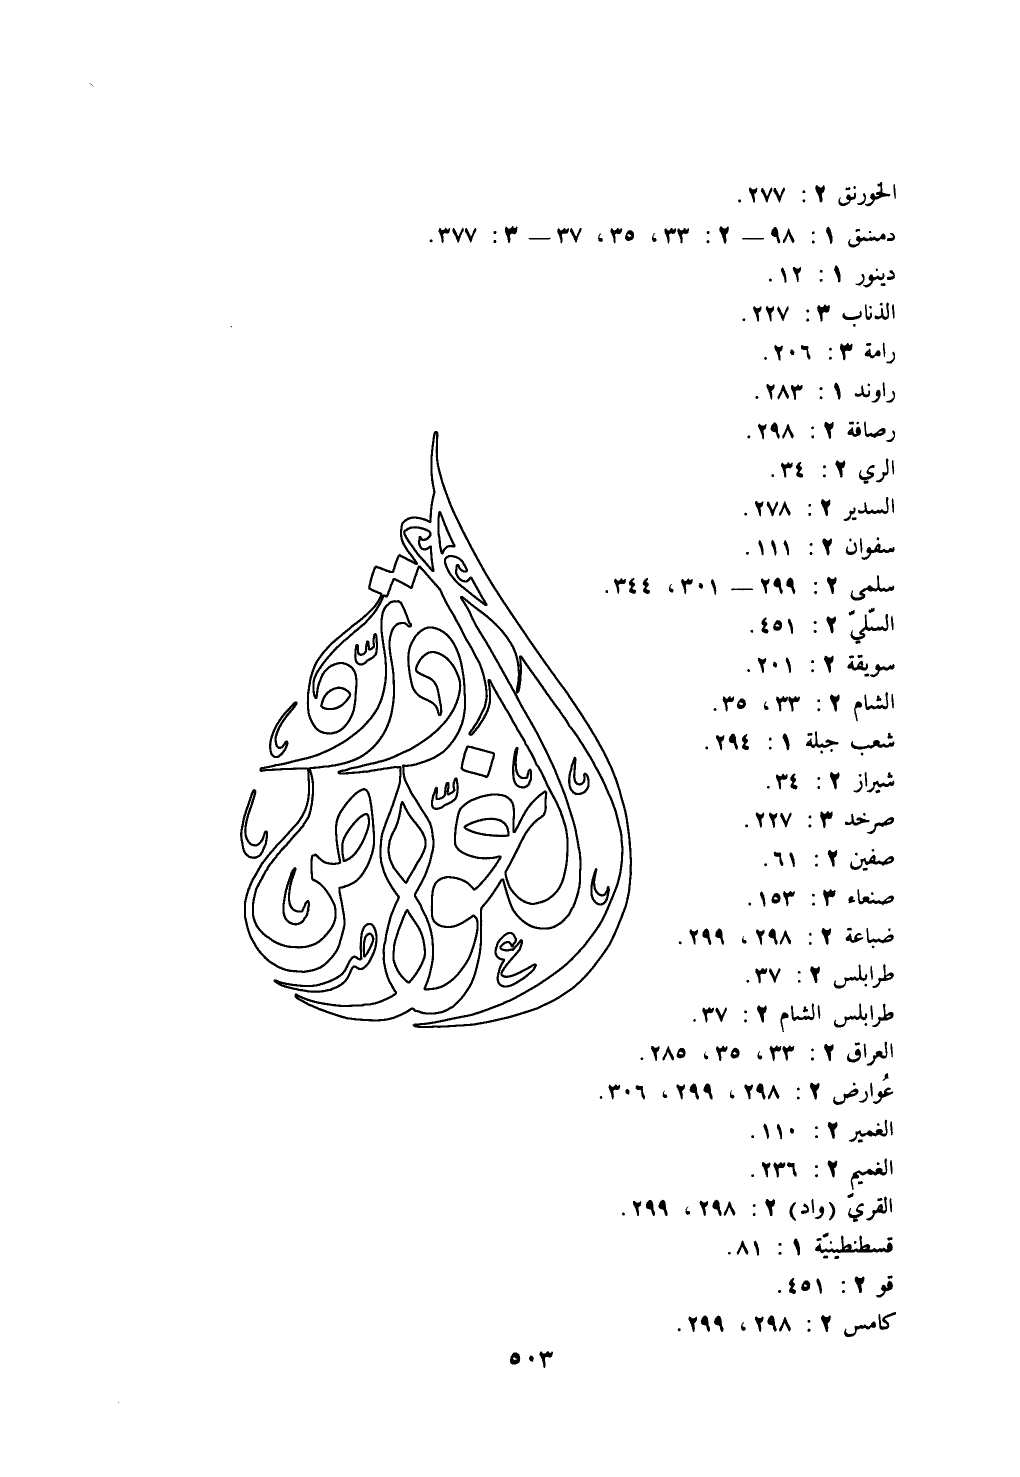 الخورنق ٢ : ٢٧٧.
دمشق ١ : ٩٨ — ٢ : ٣٣، ٣٥، ٣٧ — ٣ : ٣٧٧.
دينور ١ : ١٢.
الذناب ٣ : ٢٢٧.
رامة ٣ : ٢٠٦.
راوند ١ : ٢٨٣.
رصافة ٢ : ٢٩٨.
الري ٢ : ٣٤.
السدير ٢ : ٢٧٨.
سفوان ٢ : ١١١.
سلمى ٢ : ٢٩٩ — ٣٠١، ٣٤٤.
السّليّ ٢ : ٤٥١.
سويقة ٢ : ٢٠١.
الشام ٢ : ٣٣، ٣٥.
شعب جبلة ١ : ٢٩٤.
شيراز ٢ : ٣٤.
صرخد ٣ : ٢٢٧.
صفين ٢ : ٦١.
صنعاء ٣ : ١٥٣.
ضباعة ٢ : ٢٩٨، ٢٩٩.
طرابلس ٢ : ٣٧.
طرابلس الشام ٢ : ٣٧.
العراق ٢ : ٣٣، ٣٥، ٢٨٥.
عُوارض ٢ : ٢٩٨، ٢٩٩، ٣٠٦.
الغمير ٢ : ١١٠.
الغميم ٢ : ٢٣٦.
القريّ (واد) ٢ : ٢٩٨، ٢٩٩.
قسطنطينيّة ١ : ٨١.
قو ٢ : ٤٥١.
كامس ٢ : ٢٩٨، ٢٩٩.
٥٠٣